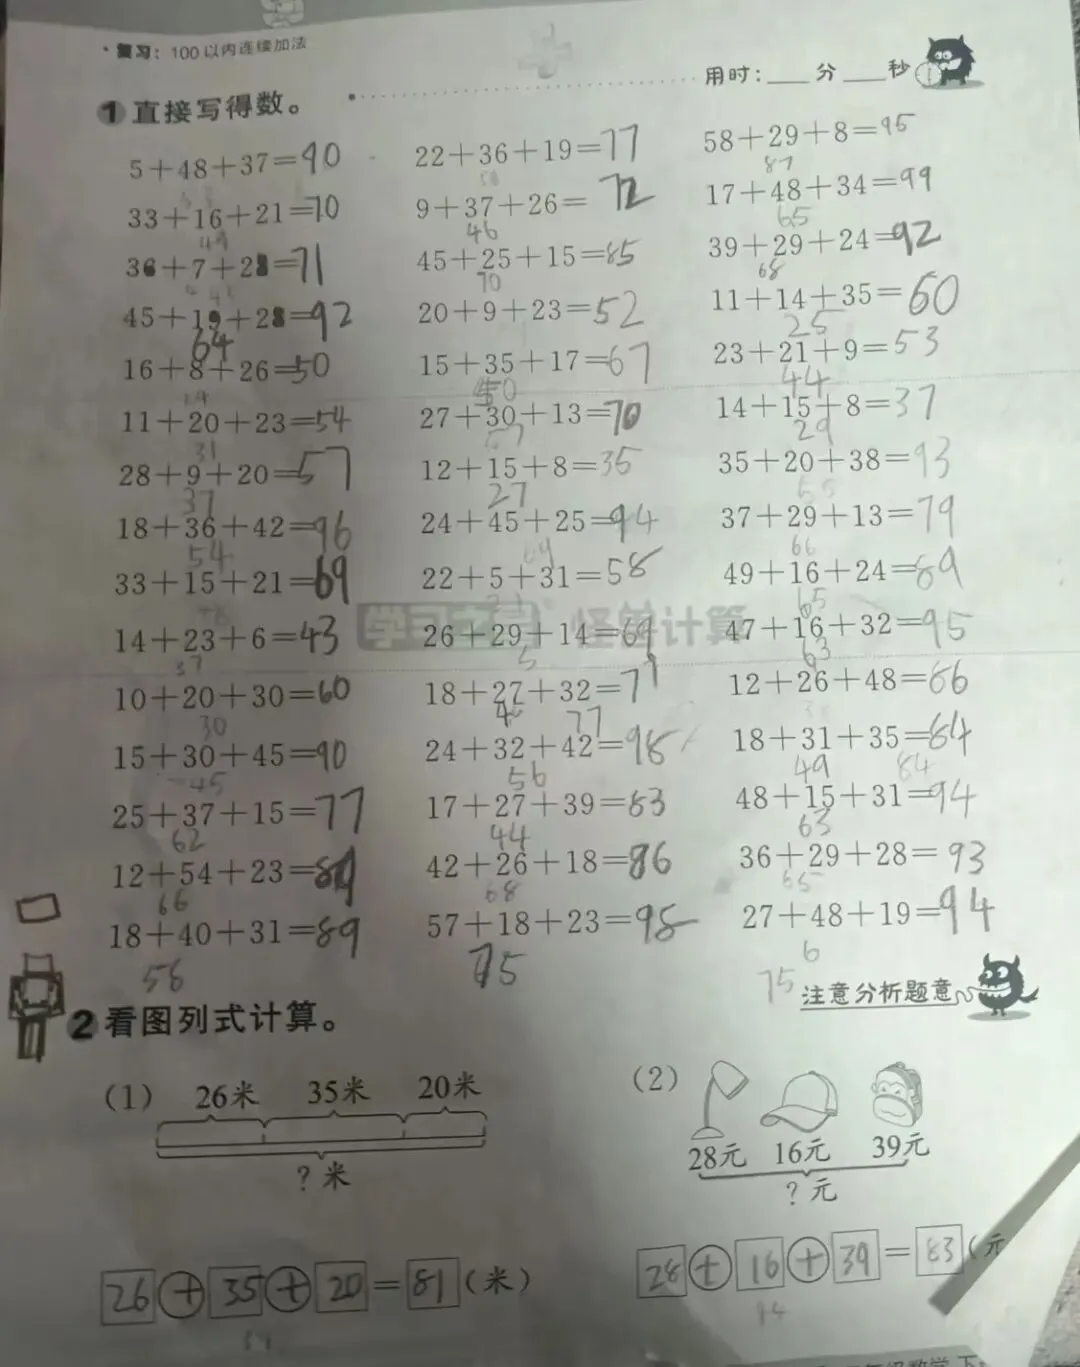 ·复习：100以内连续加法
用时：___分___秒
1 直接写得数。
5+48+37=90 22+36+19=77 58+29+8=95
87
33+16+21=70 9+37+26=72 17+48+34=99
49 46 65
36+7+28=71 45+25+15=85 39+29+24=92
70 68
45+19+28=92 20+9+23=52 11+14+35=60
64 25
16+8+26=50 15+35+17=67 23+21+9=53
50 44
11+20+23=54 27+30+13=70 14+15+8=37
31 57 29
28+9+20=57 12+15+8=35 35+20+38=93
37 27 55
18+36+42=96 24+45+25=94 37+29+13=79
54 69 66
33+15+21=69 22+5+31=58 49+16+24=89
65
14+23+6=43 26+29+14=69 47+16+32=95
37 5 63
10+20+30=60 18+27+32=77 12+26+48=86
30 77
15+30+45=90 24+32+42=98 18+31+35=84
45 56 49 84
25+37+15=77 17+27+39=83 48+15+31=94
62 44 63
12+54+23=89 42+26+18=86 36+29+28=93
66 68 65
18+40+31=89 57+18+23=98 27+48+19=94
58 75 75 6
学习之星 怪兽计算
注意分析题意
2 看图列式计算。
(1) 26米 35米 20米
?米
26+35+20=81(米)
(2)
28元 16元 39元
?元
28+16+39=83(元